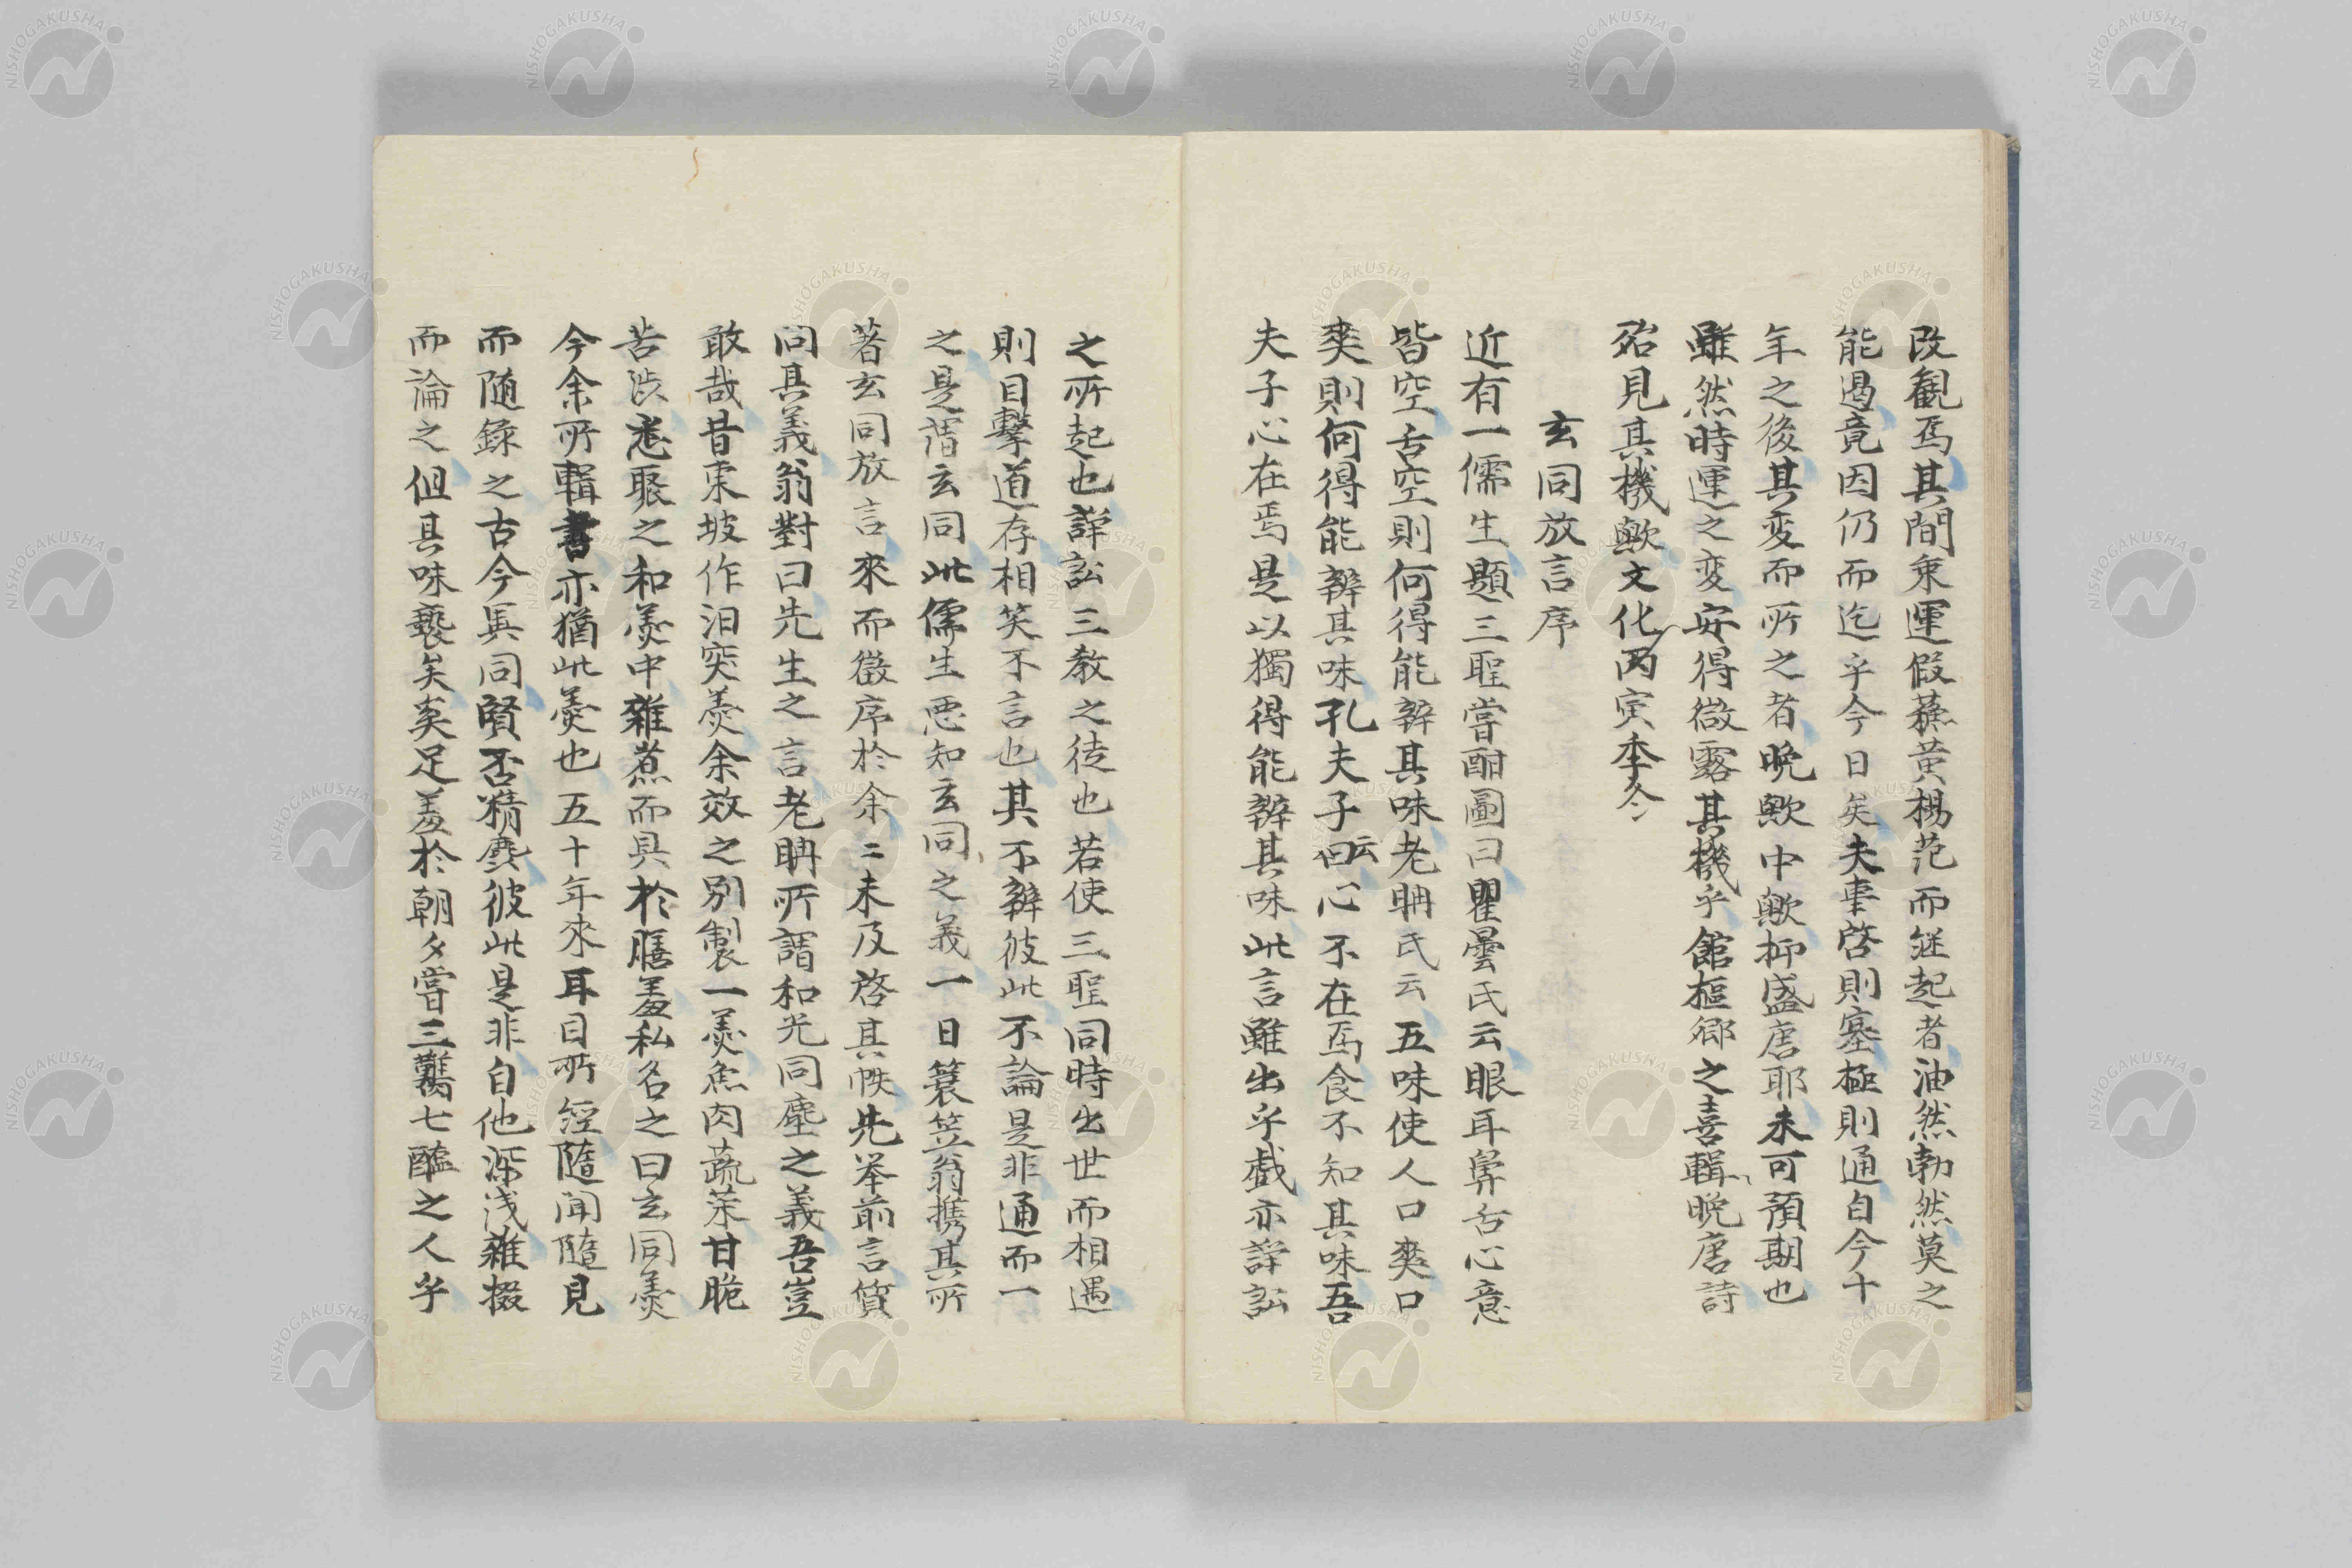 改観焉其間乗運假蘓黄楊范而継起者油然勃然莫之
能遏竟因仍而迄乎今日矣夫事啓則塞極則通自今十
年之後其変而所之者晩歟中歟抑盛唐耶未可預期也
雖然時運之変安得微露其機乎館樞郷之喜輯晩唐詩
殆見其機歟文化丙寅季冬
玄同放言序
近有一儒生題三聖嘗酣圖曰瞿曇氏云眼耳鼻舌心意
皆空舌空則何得能辨其味老聃氏云五味使人口爽口
爽則何得能辨其味孔夫子云心不在焉食不知其味吾
夫子心在焉是以獨得能辨其味此言雖出乎戯亦諍訟
之所起也諍訟三教之徒也若使三聖同時出世而相遇
則目撃道存相笑不言也其不辨彼此不論是非通而一
之是謂玄同此儒生悪知玄同之義一日簑笠翁携其所
著玄同放言來而徴序於余二未及啓其帙先挙前言質
問其義翁對曰先生之言老聃所謂和光同塵之義吾豈
敢哉昔東坡作汨突羮余效之別製一羮魚肉蔬菜甘脆
苦渋悉聚之和羮中雜煮而具於膳羞私名之曰玄同羮
今余所輯書亦猶此羮也五十年來耳目所經隨聞隨見
而随録之古今異同賢否精麁彼此是非自他深浅雜掇
而論之但其味褻矣奚足羞於朝夕嘗三臡七醢之人乎
NISHOGAKUSHA